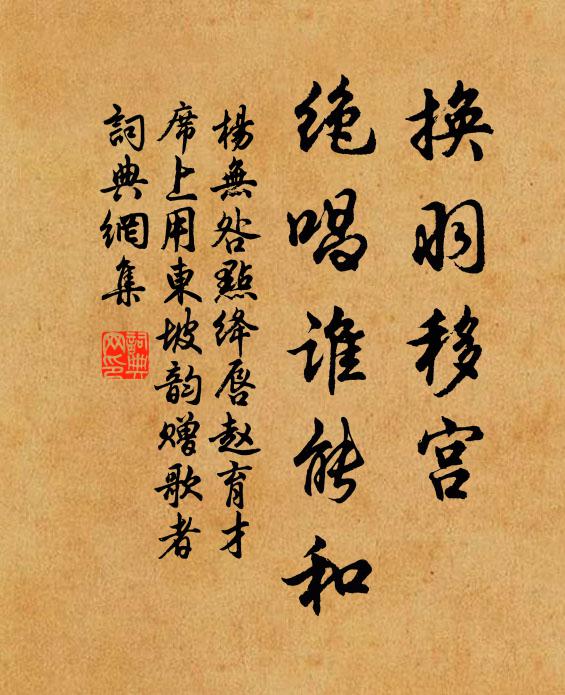 换羽移宫
绝唱谁能和
楊無咎點绛唇趙育才
席上用東坡韵赠歌者
詞典網集
詞典
网印